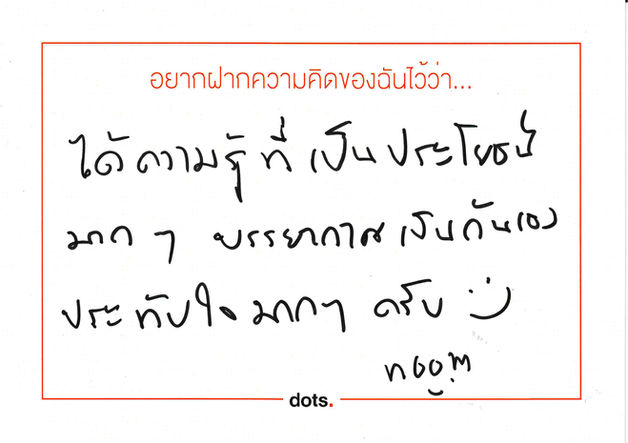 อยากฝากความคิดของฉันไว้ว่า...
ได้ความรู้ที่เป็นประโยชน์
มากๆ บรรยากาศเป็นกันเอง
ประทับใจมากๆ ครับ :)
dots.